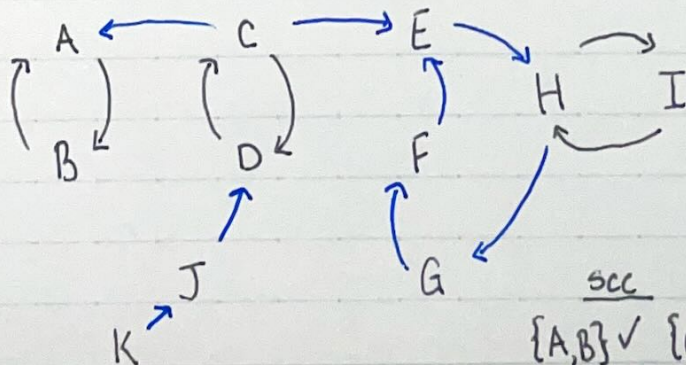 A C E
H I
B D F
J G
K
scc
{A,B} ✓ {